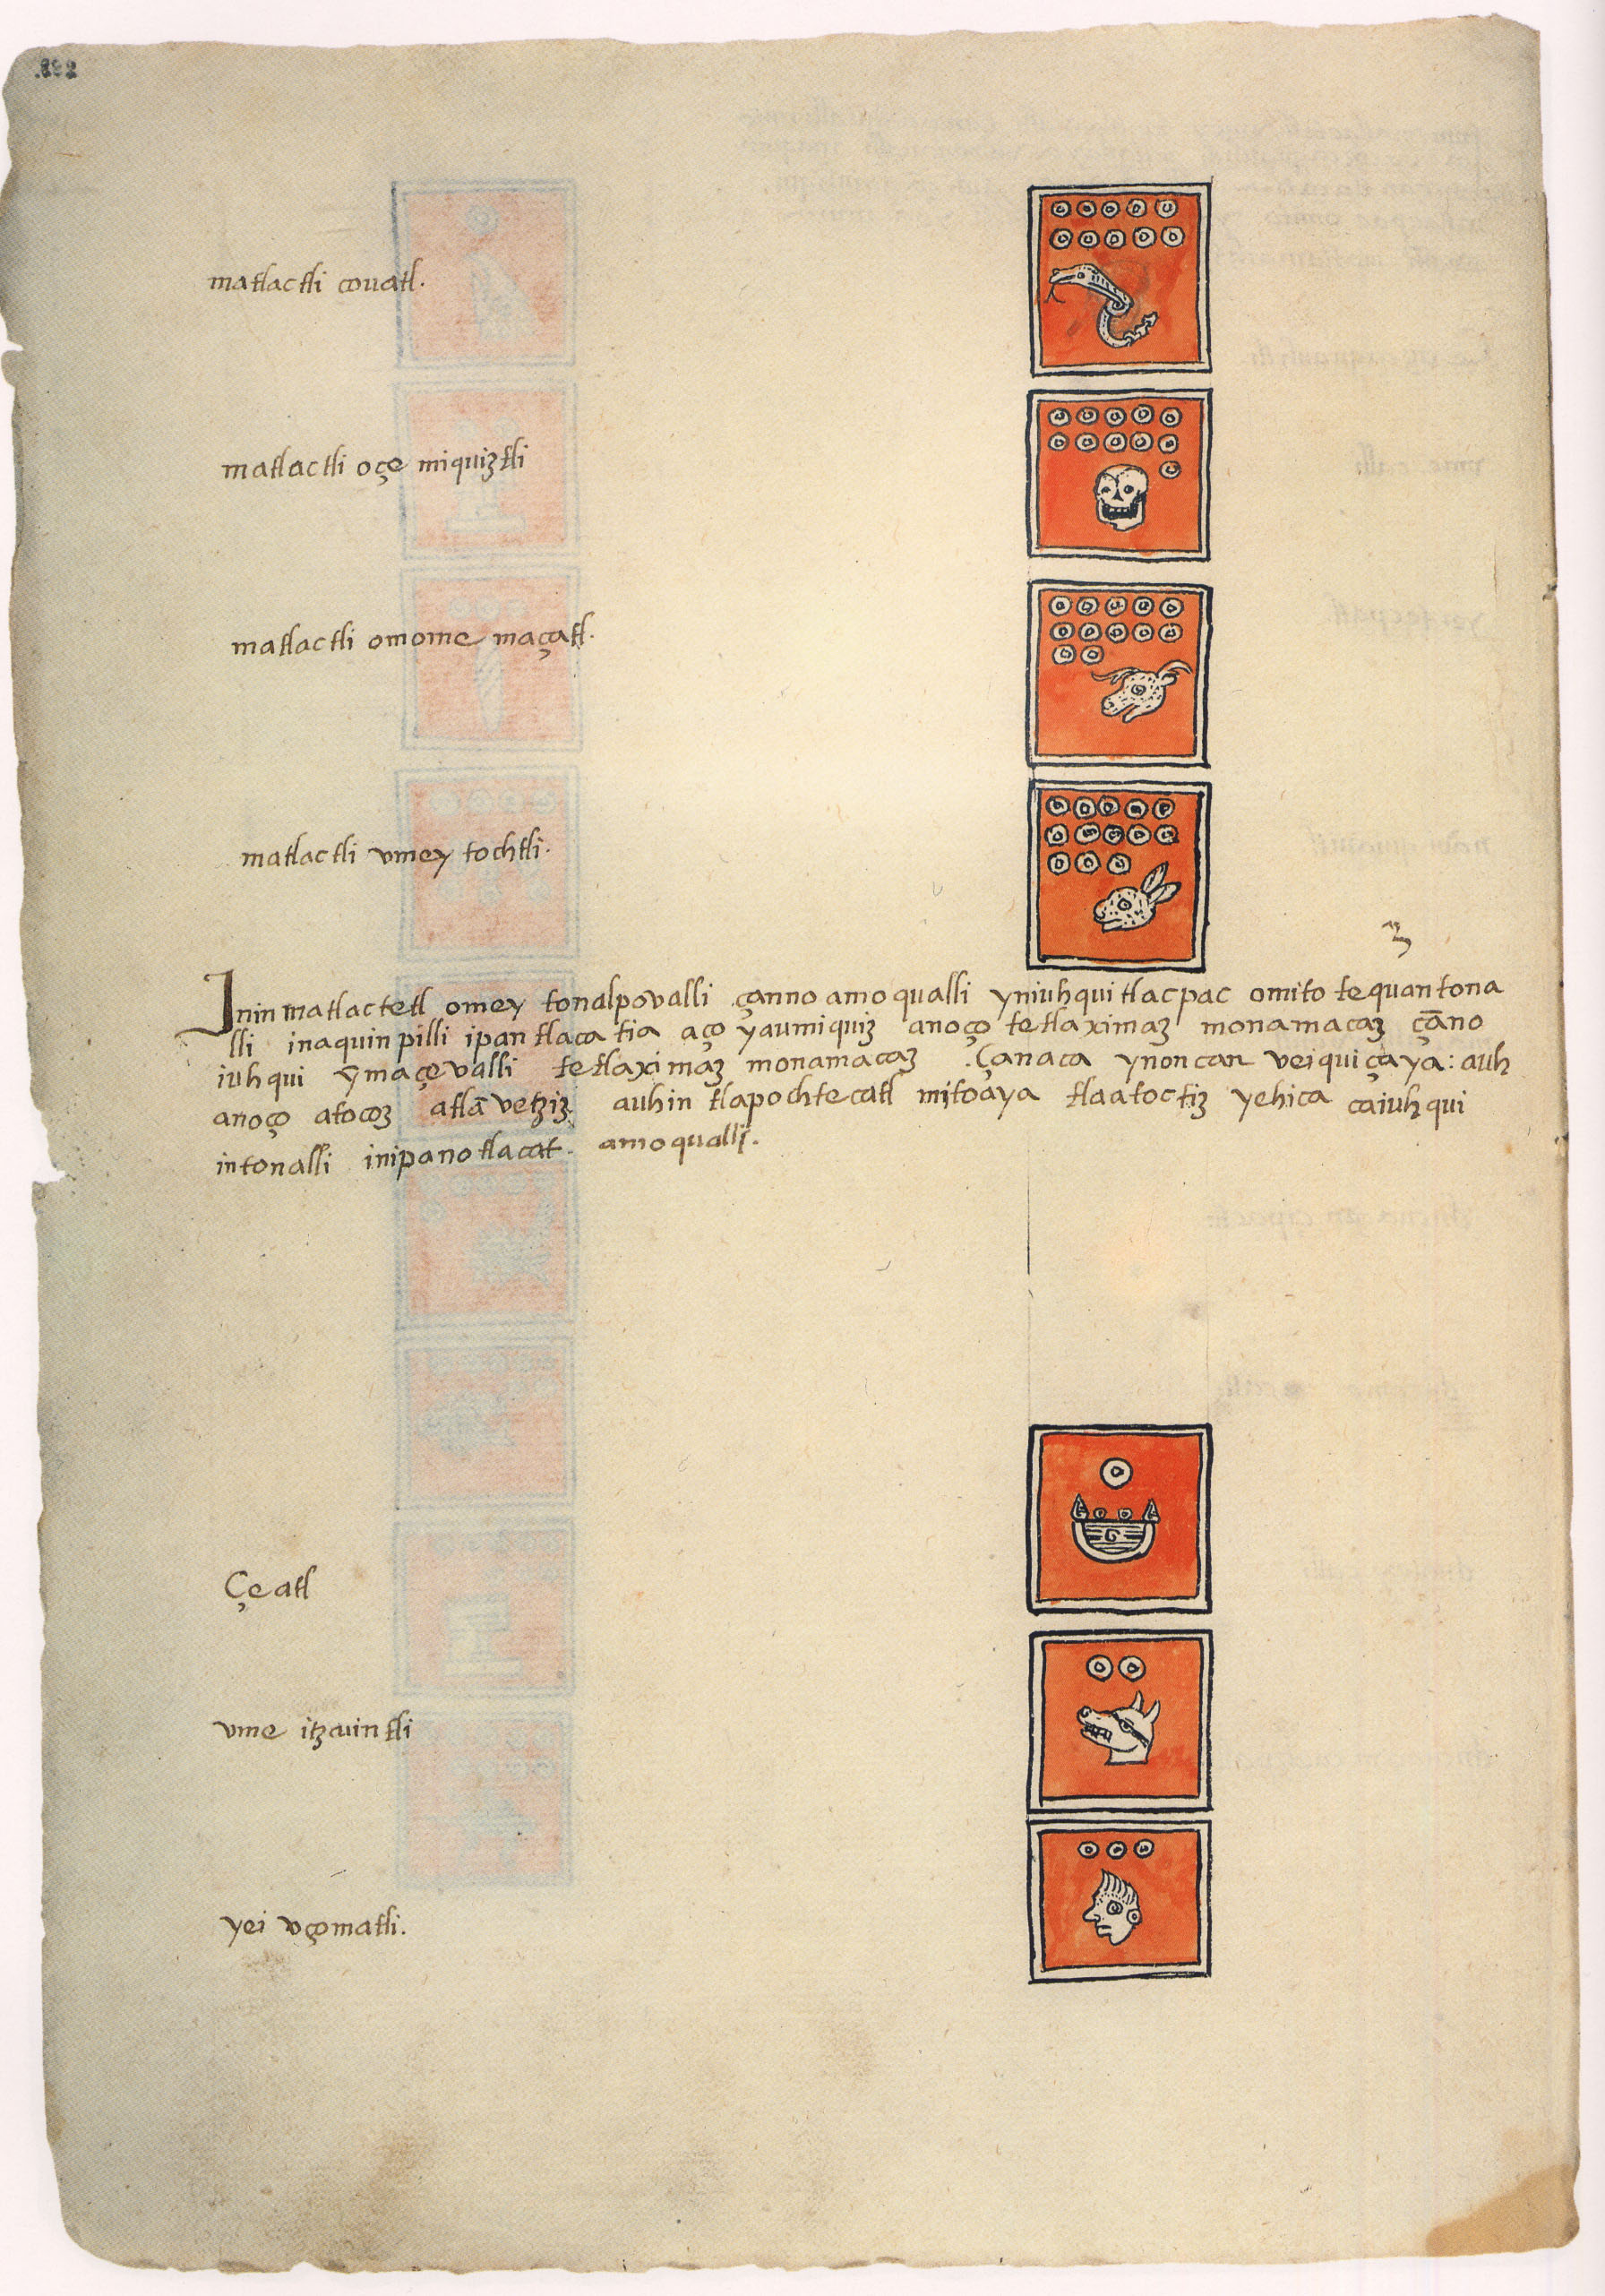 matlactli couatl.
matlactli oçe miquiztli
matlactli omome maçatl.
matlactli vmey tochtli.
Inin matlactetl omey tonalpovalli çanno amo qualli yniuhqui tlacpac omito tequantona
lli inaquin pilli ipan tlacatia aço yaumiquiz anoço tetlaximaz monamacaz çāno
iuhqui ỹmaçevalli tetlaximaz monamacaz. Çanaca ynoncan veiquiçaya: auh
anoço atocoz atlā vetziz. auhin tlapochtecatl mitoaya tlaatoctiz yehica caiuhqui
intonalli inipanotlacat. amo qualli.
Çe atl
vme itzcuintli
yei voçomatli.